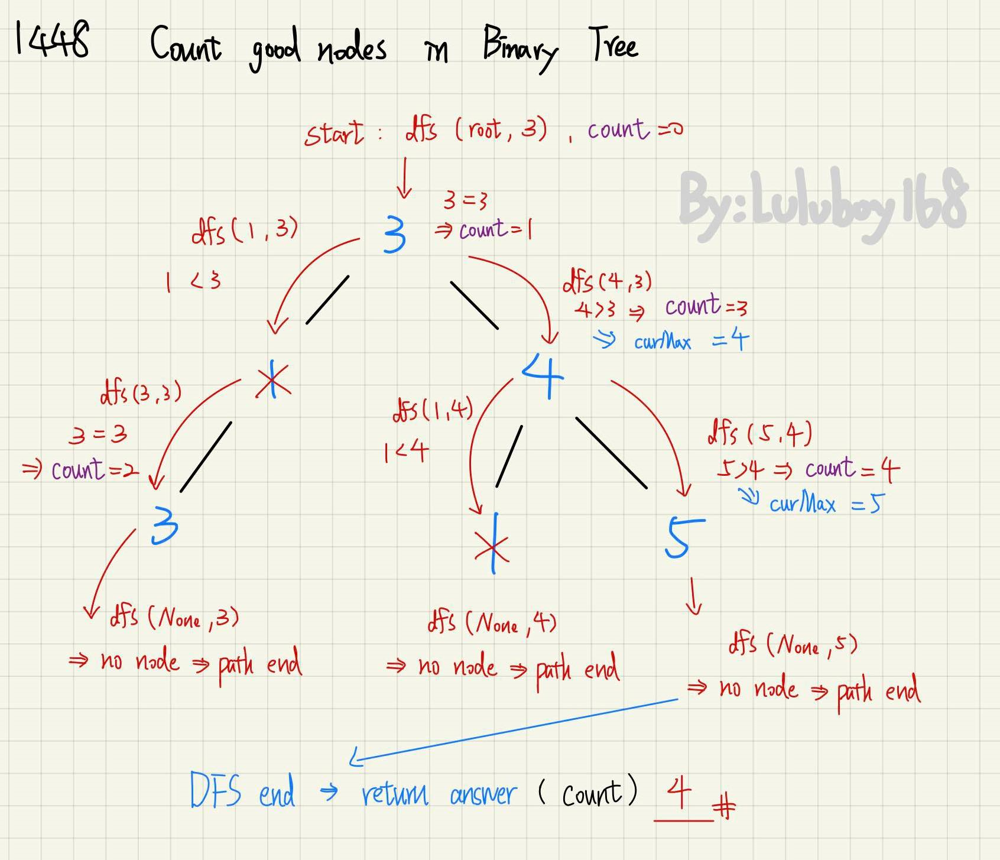 1448 Count good nodes in Binary Tree
start : dfs (root, 3) , count =0
By:Luluboy168
3 = 3
⇒ count = 1
3
dfs(1,3)
1 < 3
dfs(4,3)
4>3 ⇒ count =3
⇒ curMax = 4
1
4
dfs(3,3)
3 = 3
⇒ count =2
dfs(1,4)
1<4
dfs(5,4)
5>4 ⇒ count = 4
⇒ curMax = 5
3
1
5
dfs (None ,3)
⇒ no node ⇒ path end
dfs (None ,4)
⇒ no node ⇒ path end
dfs (None ,5)
⇒ no node ⇒ path end
DFS end → return answer ( count ) 4 #